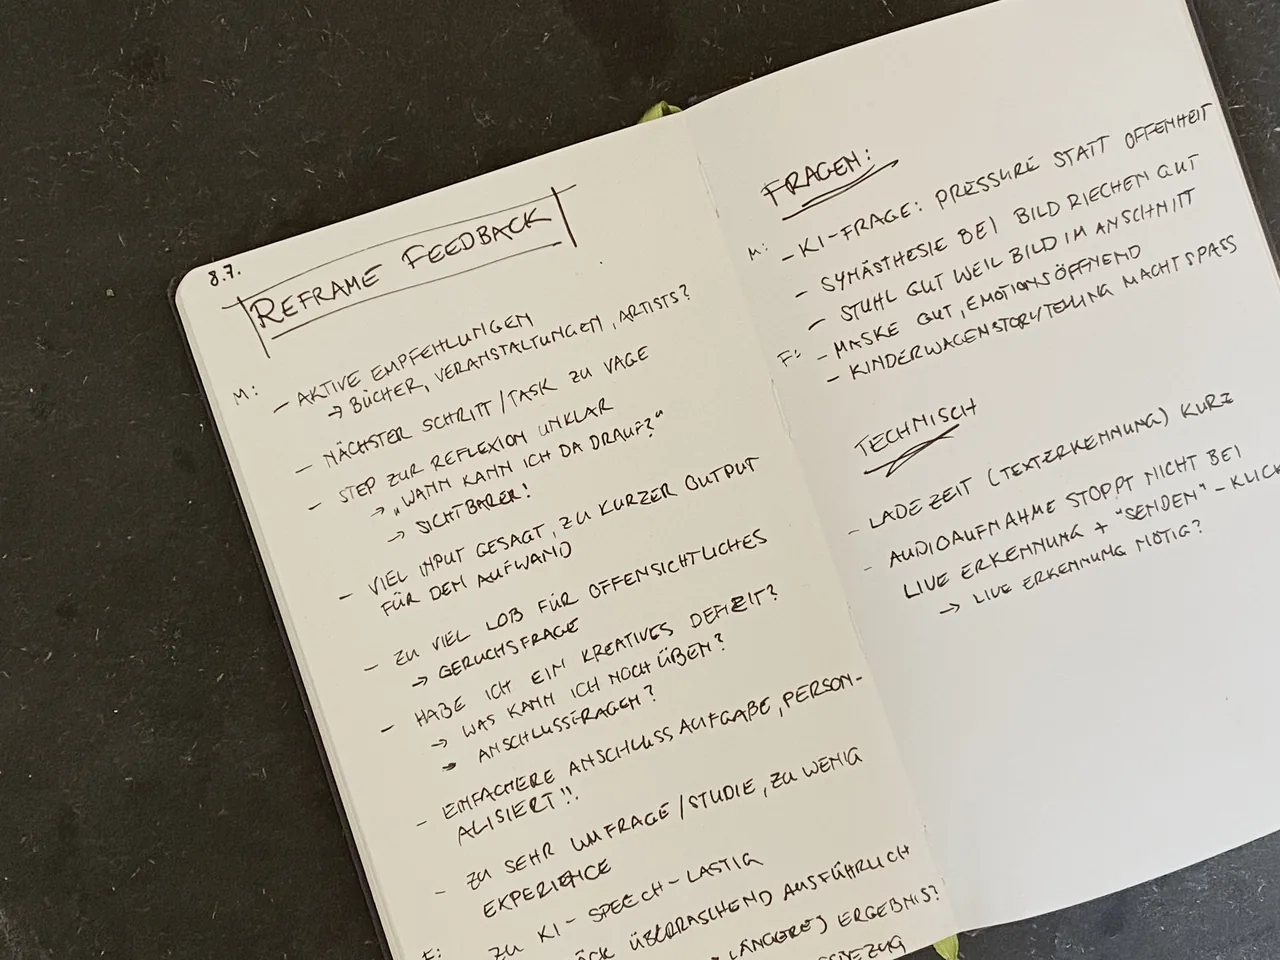 8.7.
REFRAME FEEDBACK
M: - AKTIVE EMPFEHLUNGEN
→ BÜCHER, VERANSTALTUNGEN, ARTISTS?
- NÄCHSTER SCHRITT/TASK ZU VAGE
- STEP ZUR REFLEXION UNKLAR
→ „WANN KANN ICH DA DRAUF?“
→ SICHTBARER!
- VIEL INPUT GESAGT, ZU KURZER OUTPUT
FÜR DEN AUFWAND
- ZU VIEL LOB FÜR OFFENSICHTLICHES
→ GERUCHSFRAGE
- HABE ICH EIN KREATIVES DEFIZIT?
→ WAS KANN ICH NOCH ÜBEN?
→ ANSCHLUSSFRAGEN?
- EINFACHERE ANSCHLUSS AUFGABE, PERSON-
ALISIERT!!
- ZU SEHR UMFRAGE/STUDIE, ZU WENIG
EXPERIENCE
F: ZU KI-SPEECH-LASTIG
ÜBERRASCHEND AUSFÜHRLICH
LÄNGERE) ERGEBNIS?
FRAGEN:
M: - KI-FRAGE: PRESSURE STATT OFFENHEIT
- SYNÄSTHESIE BEI BILD RIECHEN GUT
- STUHL GUT WEIL BILD IM ANSCHNITT
F: - MASKE GUT, EMOTIONSÖFFNEND
- KINDERWAGENSTORYTELLING MACHT SPASS
TECHNISCH
- LADEZEIT (TEXTERKENNUNG) KURZ
- AUDIOAUFNAHME STOPPT NICHT BEI
LIVE ERKENNUNG + "SENDEN"-KLICK
→ LIVE ERKENNUNG NÖTIG?